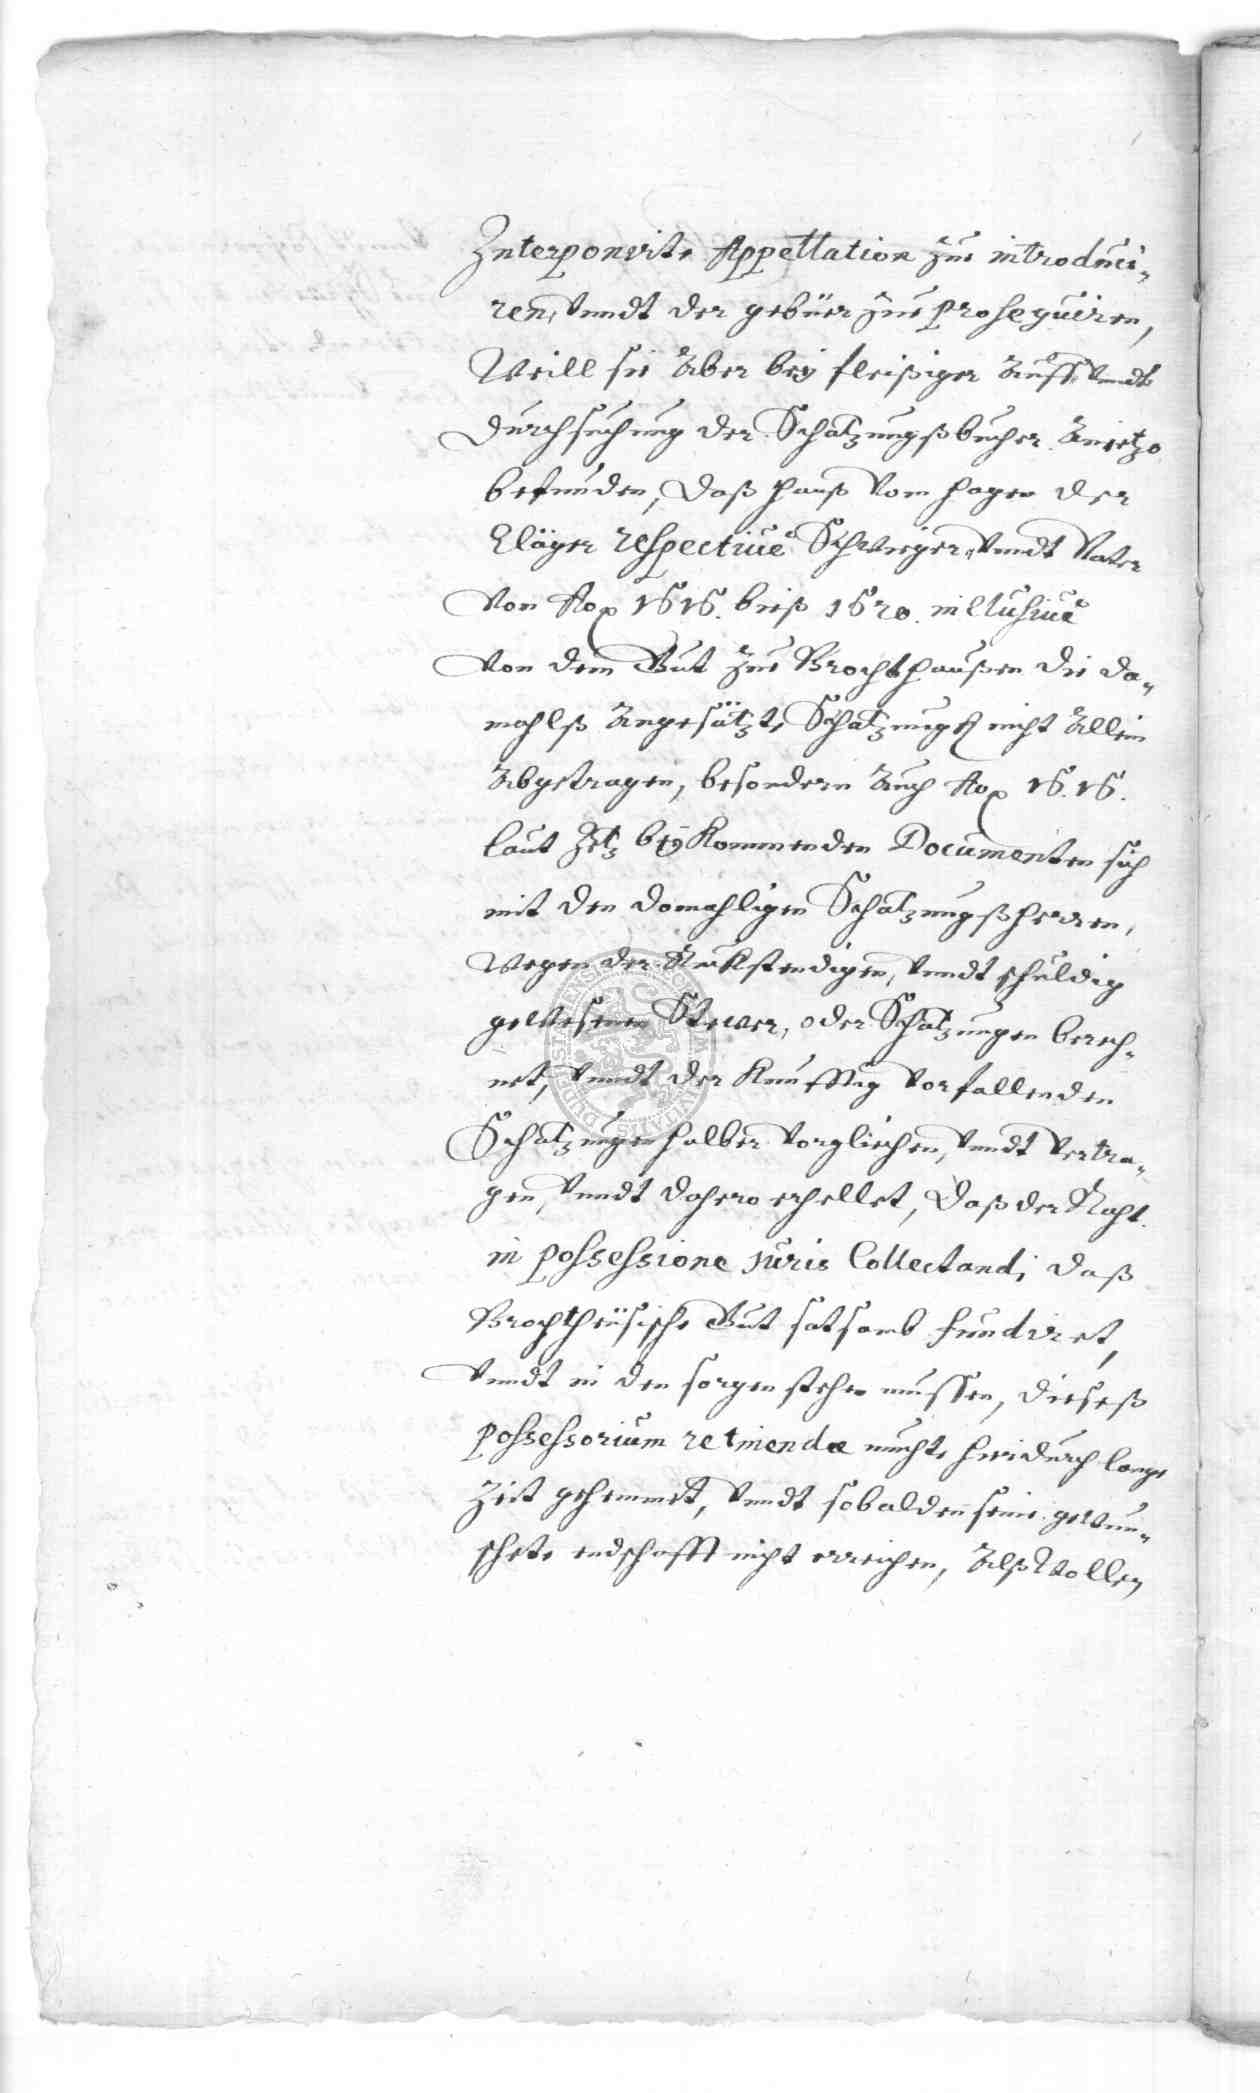 Interponirte Appellation zue introduci-
ren, vnndt der gebüer zue prosequiren,
Weill sie Aber beÿ fleißiger Auff: vnndt
durchsuchung der Schatzungßbucher Anietzo
befunden, daß Hanß vom Hagen der
Kläger respectiue Schwieger: vnndt Vater
von Ao 1616. bieß 1620. inclusiuè
von dem Gut zue Brochthaußen die da-
mahlß Angesätzte Schatzungen nicht Allein
Abgetragen, besondern Auch Ao 1616.
laut beÿkommenden Documenten sich
mit den domahligen Schatzungßherren,
wegen der Rückstendigen, vnndt schuldig
gewesenen Stewer, oder Schatzungen berech-
net, vnndt der Kunfftig vorfallenden
Schatzungen halber vorgliechen, vnndt vertra-
gen, vnndt dahero erhellet, daß der Raht
in possessione juris Collectandi daß
Brochtheüsische Gut satsamb fundiret,
vnndt in den sorgen stehen mussen, dieseß
possessorium retinendæ muchte hierdurch lange
Zeit gehemmet, vnndt sobalden seine gewun-
schete endschafft nicht erreichen, Alß wollen